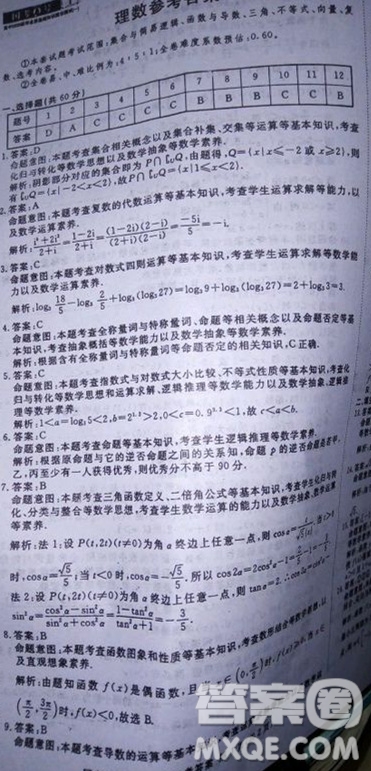 理数参考答案
①本套试题考试范围:集合与简易逻辑、函数与导数、三角、不等式、向量、复
数、选考内容。
②全卷易、中、难比例为:4:5:1;全卷难度系数预估:0.60。
一、选择题(共60分)
题号 1 2 3 4 5 6 7 8 9 10 11 12
答案 D A C C C C B B B C C B
1.答案:D
命题意图:本题考查集合相关概念以及集合补集、交集等运算等基本知识,考查
化归与转化等数学思想以及数学抽象等数学素养.
解析:阴影部分对应的集合即为P∩∁UQ.由题得,Q={x|x≤-2或x≥2},则
有∁UQ={x|-2<x<2},故P∩∁UQ={x|1≤x<2}.
2.答案:A
命题意图:本题考查复数的代数运算等基本知识,考查学生运算求解等能力,以
及数学运算素养.
解析:(i⁴+2i³)/(2+i)=(1-2i)/(2+i)=(1-2i)(2-i)/(2+i)(2-i)=-5i/5=-i.
3.答案:C
命题意图:本题考查对数式四则运算等基本知识,考查学生运算求解等数学能
力以及数学运算素养.
解析:log₃ 18/5-log₃ 2/5+log₃(log₃27)=log₃9+log₃(log₃27)=2+log₃3=3.
4.答案:C
命题意图:本题考查全称量词与特称量词、命题等相关概念以及命题否定等基
本知识,考查抽象概括等数学能力以及数学抽象等数学素养.
解析:根据含有全称量词与特称量词等命题否定的相关知识,C正确.
5.答案:C
命题意图:本题考查指数式与对数式大小比较、不等式性质等基本知识,考查化
归与转化等数学思想和运算求解、逻辑推理等数学能力以及数学抽象、逻辑推
理等数学素养.
6.答案:C
命题意图:本题考查命题等基本知识,考查学生逻辑推理等数学素养.
解析:根据原命题与它的逆否命题之间的关系知,命题p的逆否命题是若甲、
乙,丙至少有一人获得优秀,则优秀分不高于90分.
7.答案:B
命题意图:本题考查三角函数定义、二倍角公式等基本知识,考查学生化归与转
化、分类与整合等数学思想,考查学生数学运算的能力以及数学抽象、数学运算
等素养.
解析:法1:设P(t,2t)(t≠0)为角α终边上任意一点,则cosα=t/√5|t|.当t>0
时,cosα=√5/5;当t<0时,cosα=-√5/5.所以cos2α=2cos²α-1=
法2:设P(t,2t)(t≠0)为角α终边上任意一点,则tanα=2.
(cos²α-sin²α)/(sin²α+cos²α)=(1-tan²α)/(tan²α+1)=-3/5.
8.答案:B
命题意图:本题考查函数图象和性质等基本知识,考查数形结合等数学思想,以
及直观想象素养.
解析:由题知函数f(x)是偶函数,且当x∈(0,π/2)时,f(x)≥0,当x∈
(π/2,3π/2)时,f(x)<0,故选B.
9.答案:B
命题意图:本题考查导数的运算等基本
答案圈
MXQE.COM